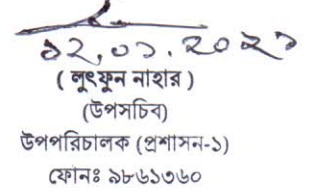 ১২.০১.২০২১
( লুৎফুন নাহার )
(উপসচিব)
উপপরিচালক (প্রশাসন-১)
ফোনঃ ৯৮৬১৩৬০